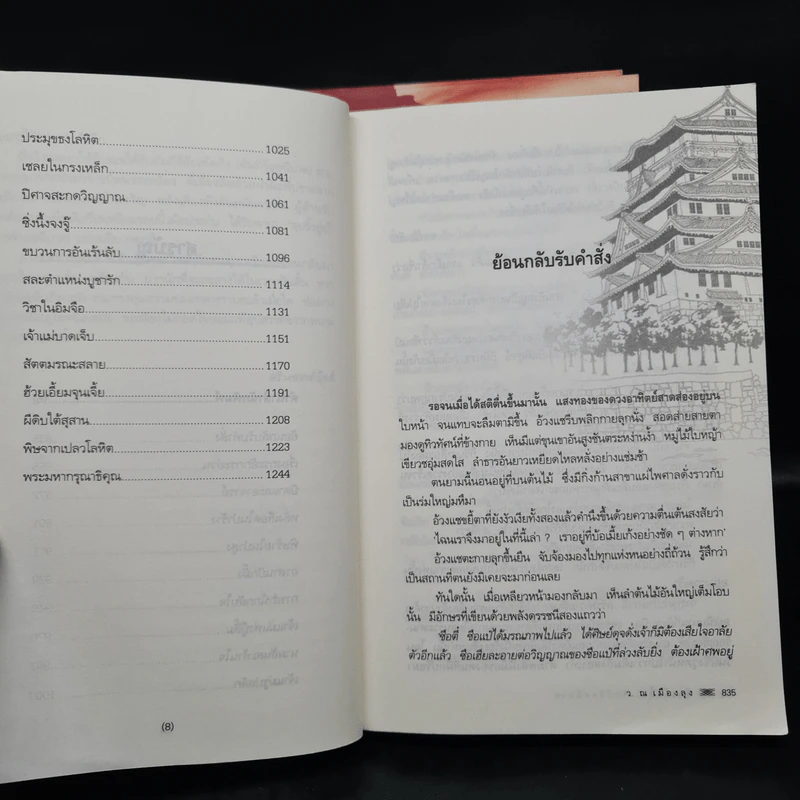 ประมุขธงโลหิต 1025
เชลยในกรงเหล็ก 1041
ปิศาจสะกดวิญญาณ 1061
ซิ่งนึ้งจงจู๊ 1081
ขบวนการอันเร้นลับ 1096
สละตำแหน่งบูชารัก 1114
วิชาในอิมจือ 1131
เจ้าแม่บาดเจ็บ 1151
สัตตมรณะสลาย 1170
ฮ้วยเอี้ยมจุนเจี้ย 1191
ผีดิบใต้สุสาน 1208
พิษจากเปลวโลหิต 1224
พระมหากรุณาธิคุณ 1244
(8)
ย้อนกลับรับคำสั่ง
รอจนเมื่อได้สติตื่นขึ้นมานั้น แสงทองของดวงอาทิตย์สาดส่องอยู่บน
ใบหน้า จนแทบจะลืมตามิขึ้น อ้วงแชรีบพลิกกายลุกนั่ง สอดส่ายสายตา
มองดูทิวทัศน์ที่ข้างกาย เห็นมีแต่ขุนเขาอันสูงชันตระหง่านง้ำ หมู่ไม้ใบหญ้า
เขียวชอุ่มสดใส ลำธารอันยาวเหยียดไหลหลั่งอย่างแช่มช้า
ตนยามนี้นอนอยู่ที่บนต้นไม้ ซึ่งมีกิ่งก้านสาขาแผ่ไพศาลดั่งราวกับ
เป็นร่มใหญ่มหึมา
อ้วงแชขยี้ตาที่ยังงัวเงียทั้งสองแล้วคำนึงขึ้นด้วยความตื่นเต้นสงสัยว่า
'ไฉนเราจึงมาอยู่ในที่นี้เล่า ? เราอยู่ที่บ้อเมี้ยเก้งอย่างชัด ๆ ต่างหาก'
อ้วงแชตะกายลุกขึ้นยืน จับจ้องมองไปทุกแห่งหนอย่างถี่ถ้วน รู้สึกว่า
เป็นสถานที่ตนยังมิเคยจะมาก่อนเลย
ทันใดนั้น เมื่อเหลียวหน้ามองกลับมา เห็นลำต้นไม้อันใหญ่เต็มโอบ
นั้น มีอักษรที่เขียนด้วยพลังดรรชนีสองแถวว่า
ซือตี๋ ซือแป๋ได้มรณภาพไปแล้ว ได้ศิษย์ดุจดั่งเจ้าก็มิต้องเสียใจอาลัย
ตัวอีกแล้ว ซือเฮียละอายต่อวิญญาณของซือแป๋ที่ล่วงลับยิ่ง ต้องเฝ้าศพอยู่
ว. ณ เมืองลุง 835